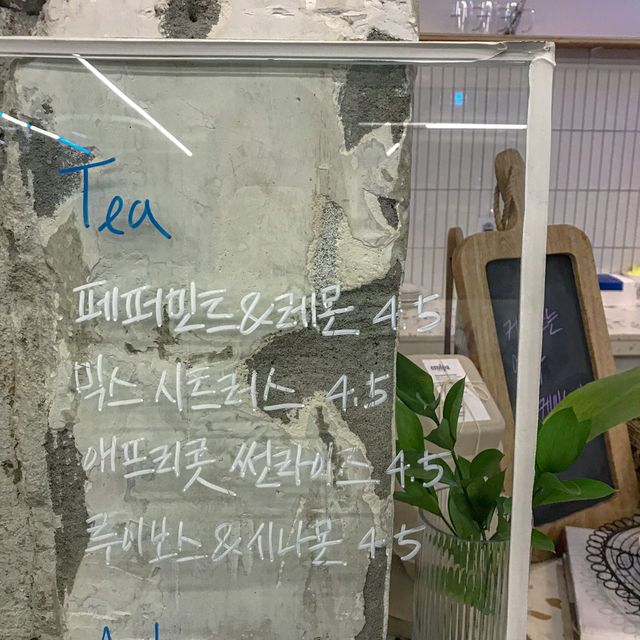 Tea
페퍼민트&레몬 4.5
믹스 시트러스 4.5
애프리콧 썬라이즈 4.5
루이보스&시나몬 4.5